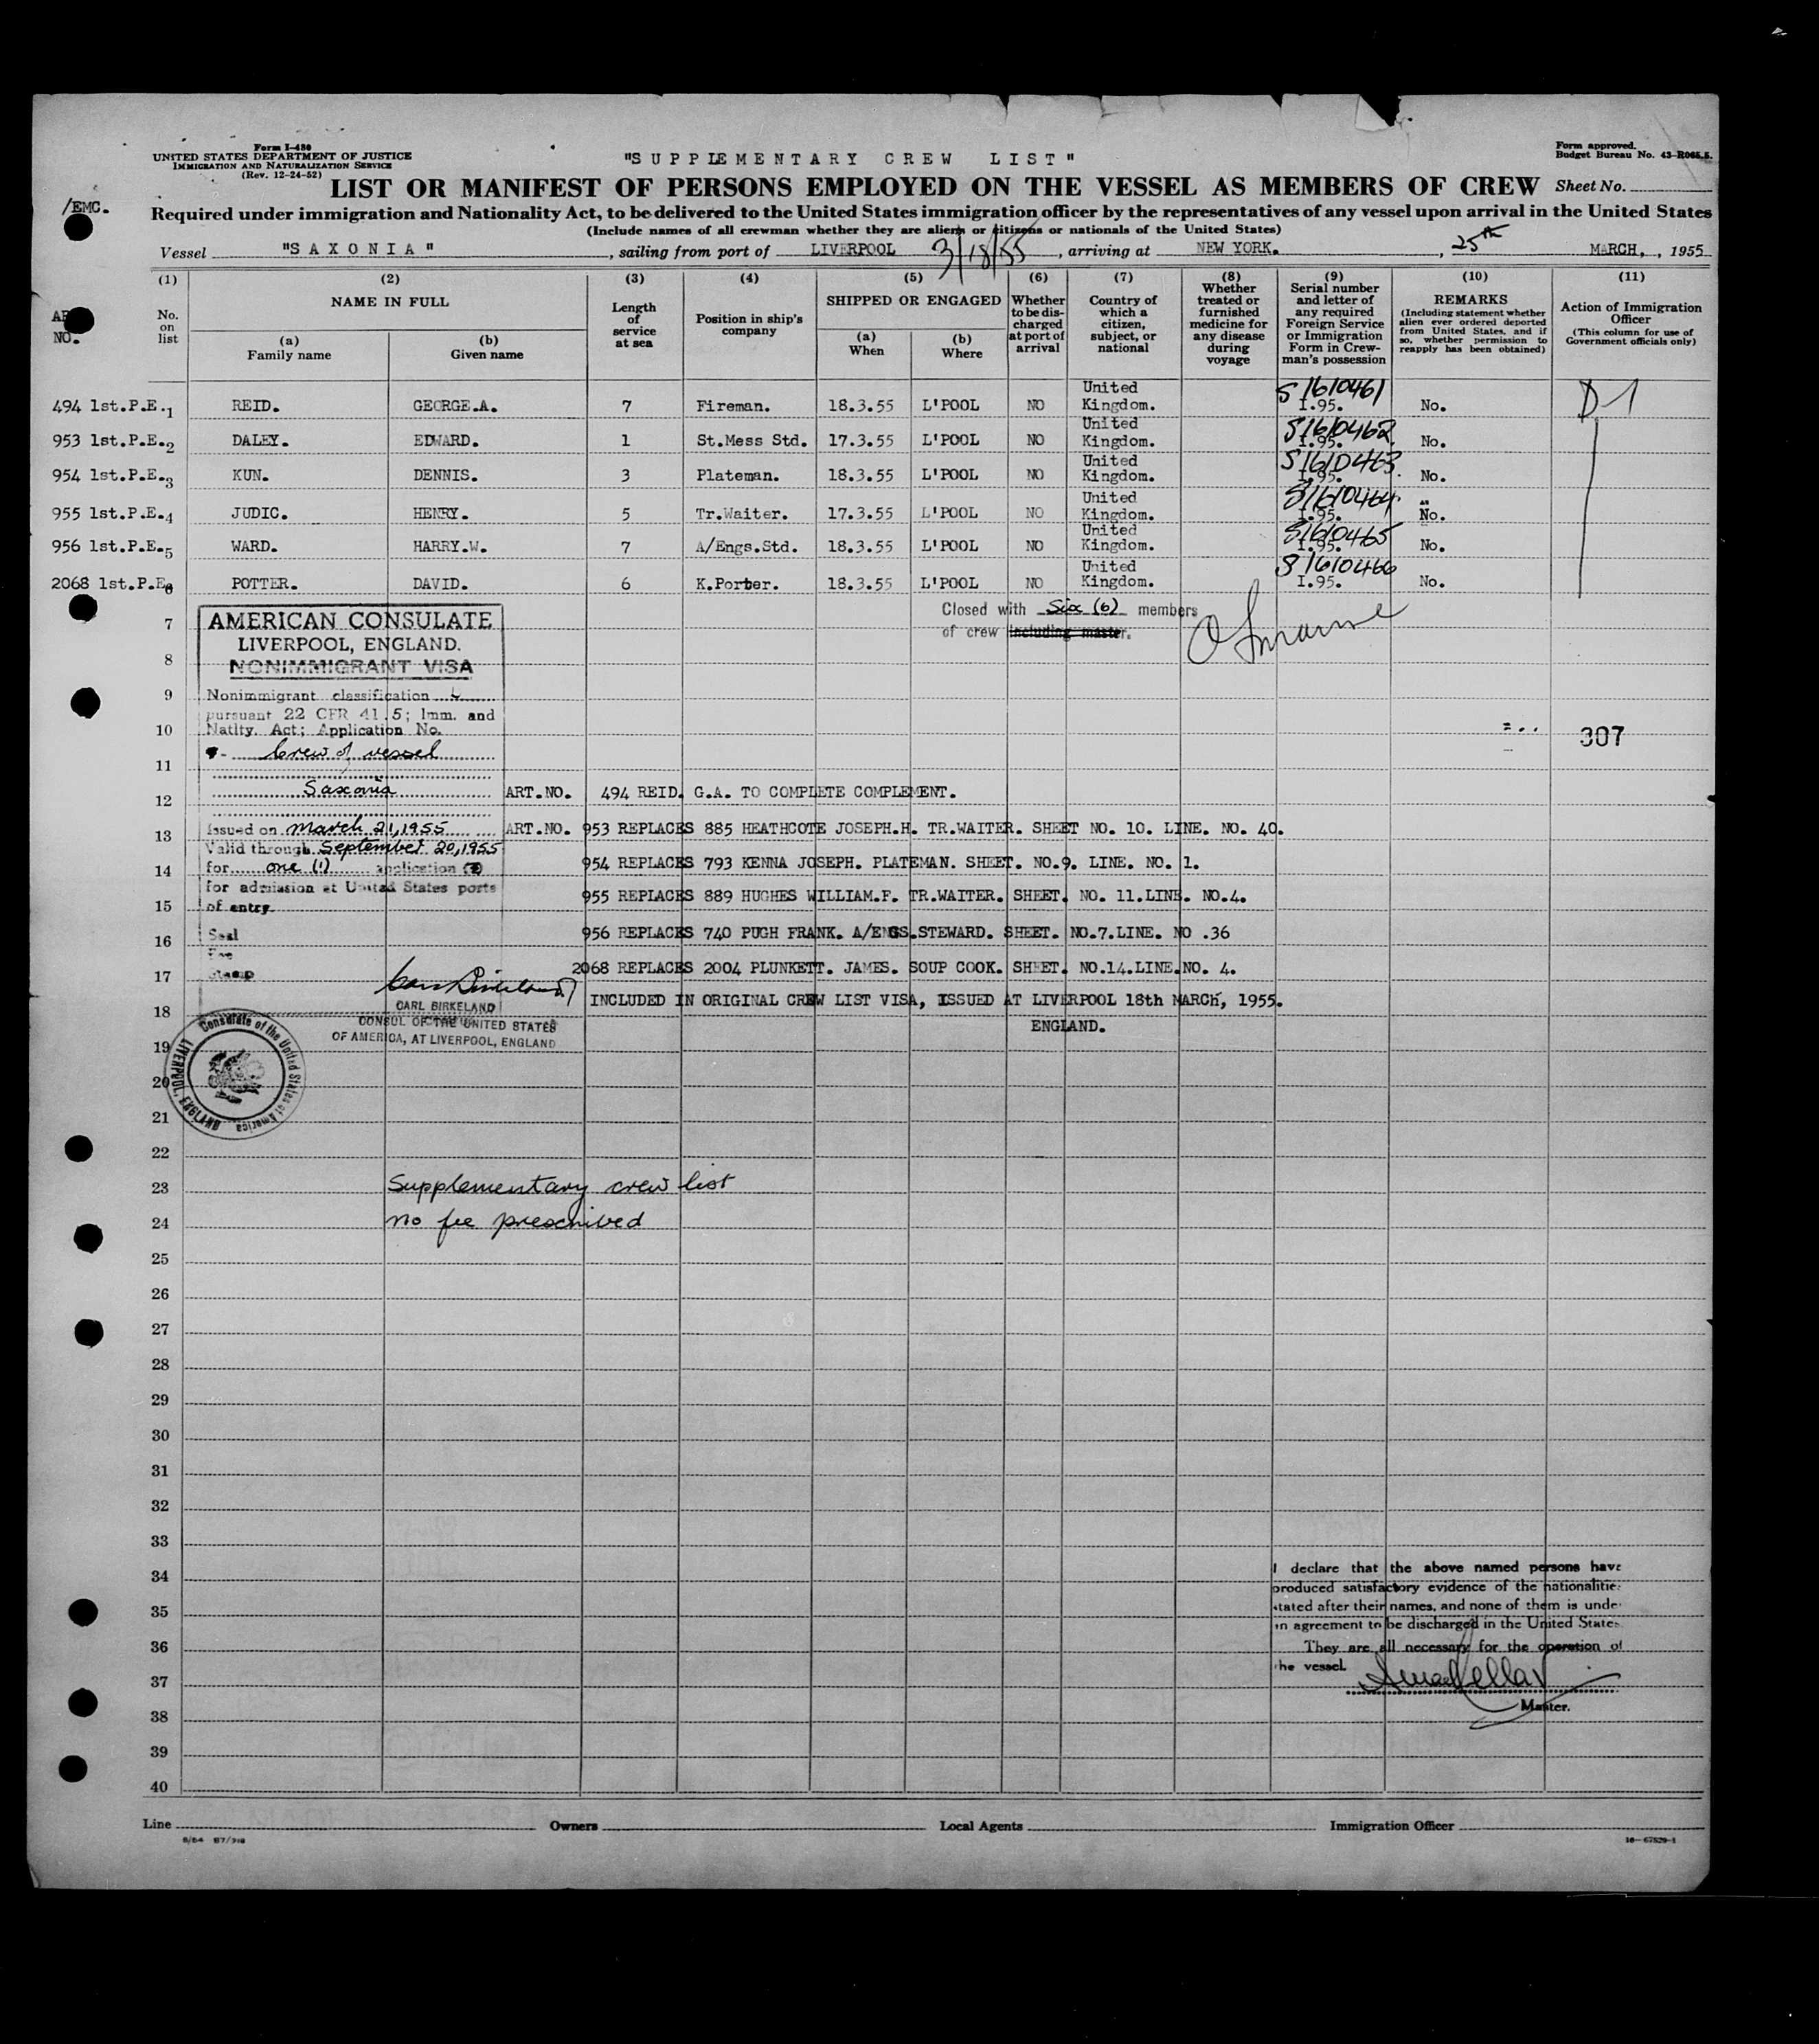 Form I-480
UNITED STATES DEPARTMENT OF JUSTICE
IMMIGRATION AND NATURALIZATION SERVICE
(Rev. 12-24-52)
"SUPPLEMENTARY CREW LIST"
Form approved.
Budget Bureau No. 43-R065.5.
/EMC.
LIST OR MANIFEST OF PERSONS EMPLOYED ON THE VESSEL AS MEMBERS OF CREW Sheet No.
Required under immigration and Nationality Act, to be delivered to the United States immigration officer by the representatives of any vessel upon arrival in the United States
(Include names of all crewman whether they are aliens or citizens or nationals of the United States)
Vessel "SAXONIA", sailing from port of LIVERPOOL 3/18/55, arriving at NEW YORK., 25th MARCH,, 1955
(1) (2) (3) (4) (5) (6) (7) (8) (9) (10) (11)
NO.
No. on list
NAME IN FULL
(a) Family name
(b) Given name
Length of service at sea
Position in ship's company
SHIPPED OR ENGAGED
(a) When
(b) Where
Whether to be discharged at port of arrival
Country of which a citizen, subject, or national
Whether treated or furnished medicine for any disease during voyage
Serial number and letter of any required Foreign Service or Immigration Form in Crewman's possession
REMARKS
(Including statement whether alien ever ordered deported from United States, and if so, whether permission to reapply has been obtained)
Action of Immigration Officer
(This column for use of Government officials only)
494 1st.P.E. 1 REID. GEORGE.A. 7 Fireman. 18.3.55 L'POOL NO United Kingdom. S1610461 I.95. No. D-1
953 1st.P.E. 2 DALEY. EDWARD. 1 St.Mess Std. 17.3.55 L'POOL NO United Kingdom. S1610462 I.95. No.
954 1st.P.E. 3 KUN. DENNIS. 3 Plateman. 18.3.55 L'POOL NO United Kingdom. S1610463 I.95. No.
955 1st.P.E. 4 JUDIC. HENRY. 5 Tr.Waiter. 17.3.55 L'POOL NO United Kingdom. S1610464 I.95. No.
956 1st.P.E. 5 WARD. HARRY.W. 7 A/Engs.Std. 18.3.55 L'POOL NO United Kingdom. S1610465 I.95. No.
2068 1st.P.E. 6 POTTER. DAVID. 6 K.Porter. 18.3.55 L'POOL NO United Kingdom. S1610466 I.95. No.
Closed with Six (6) members
of crew including master.
7
8
9
10
11
12
13
14
15
16
17
18
19
20
21
22
23
24
25
26
27
28
29
30
31
32
33
34
35
36
37
38
39
40
AMERICAN CONSULATE
LIVERPOOL, ENGLAND.
NONIMMIGRANT VISA
Nonimmigrant classification
pursuant 22 CFR 41.5; Imm. and
Natlty. Act; Application No.
Crew of vessel
Saxonia
Issued on March 21, 1955
Valid through September 20, 1955
for one (1) application
for admission at United States ports
of entry.
Seal
Fee
Stamp
307
ART.NO. 494 REID. G.A. TO COMPLETE COMPLEMENT.
ART.NO. 953 REPLACES 885 HEATHCOTE JOSEPH.H. TR.WAITER. SHEET NO. 10. LINE. NO. 40.
954 REPLACES 793 KENNA JOSEPH. PLATEMAN. SHEET. NO.9. LINE. NO. 1.
955 REPLACES 889 HUGHES WILLIAM.F. TR.WAITER. SHEET. NO. 11.LINE. NO.4.
956 REPLACES 740 PUGH FRANK. A/ENGS.STEWARD. SHEET. NO.7.LINE. NO .36
2068 REPLACES 2004 PLUNKETT. JAMES. SOUP COOK. SHEET. NO.14.LINE.NO. 4.
INCLUDED IN ORIGINAL CREW LIST VISA, ISSUED AT LIVERPOOL 18th MARCH, 1955.
ENGLAND.
Carl Birkeland
CARL BIRKELAND
CONSUL OF THE UNITED STATES
OF AMERICA, AT LIVERPOOL, ENGLAND
Consulate of the United States of America
LIVERPOOL, ENGLAND
Supplementary crew list
no fee prescribed
I declare that the above named persons have
produced satisfactory evidence of the nationalitie
stated after their names, and none of them is unde
an agreement to be discharged in the United State
They are all necessary for the operation of
the vessel.
Master.
Line Owners Local Agents Immigration Officer
16-67529-1